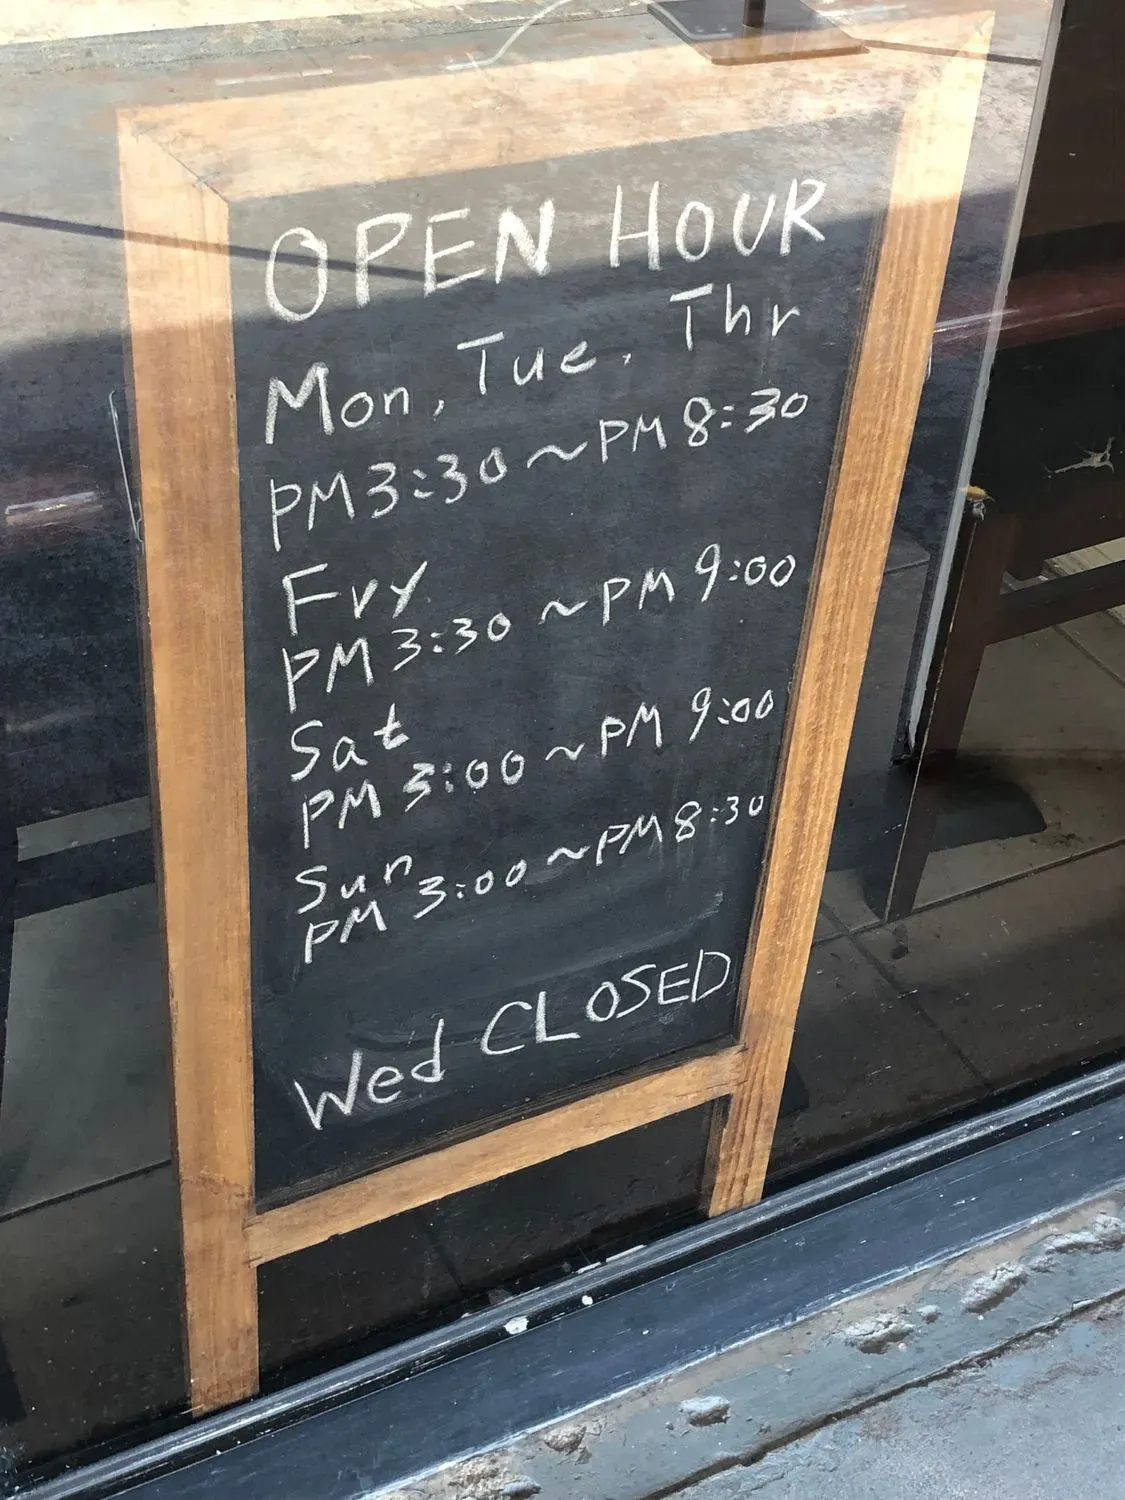 OPEN HOUR
Mon, Tue, Thr
PM3:30~PM 8:30
Fry
PM 3:30 ~PM 9:00
Sat
PM 3:00 ~PM 9:00
Sun
PM 3:00 ~PM 8:30
Wed CLOSED